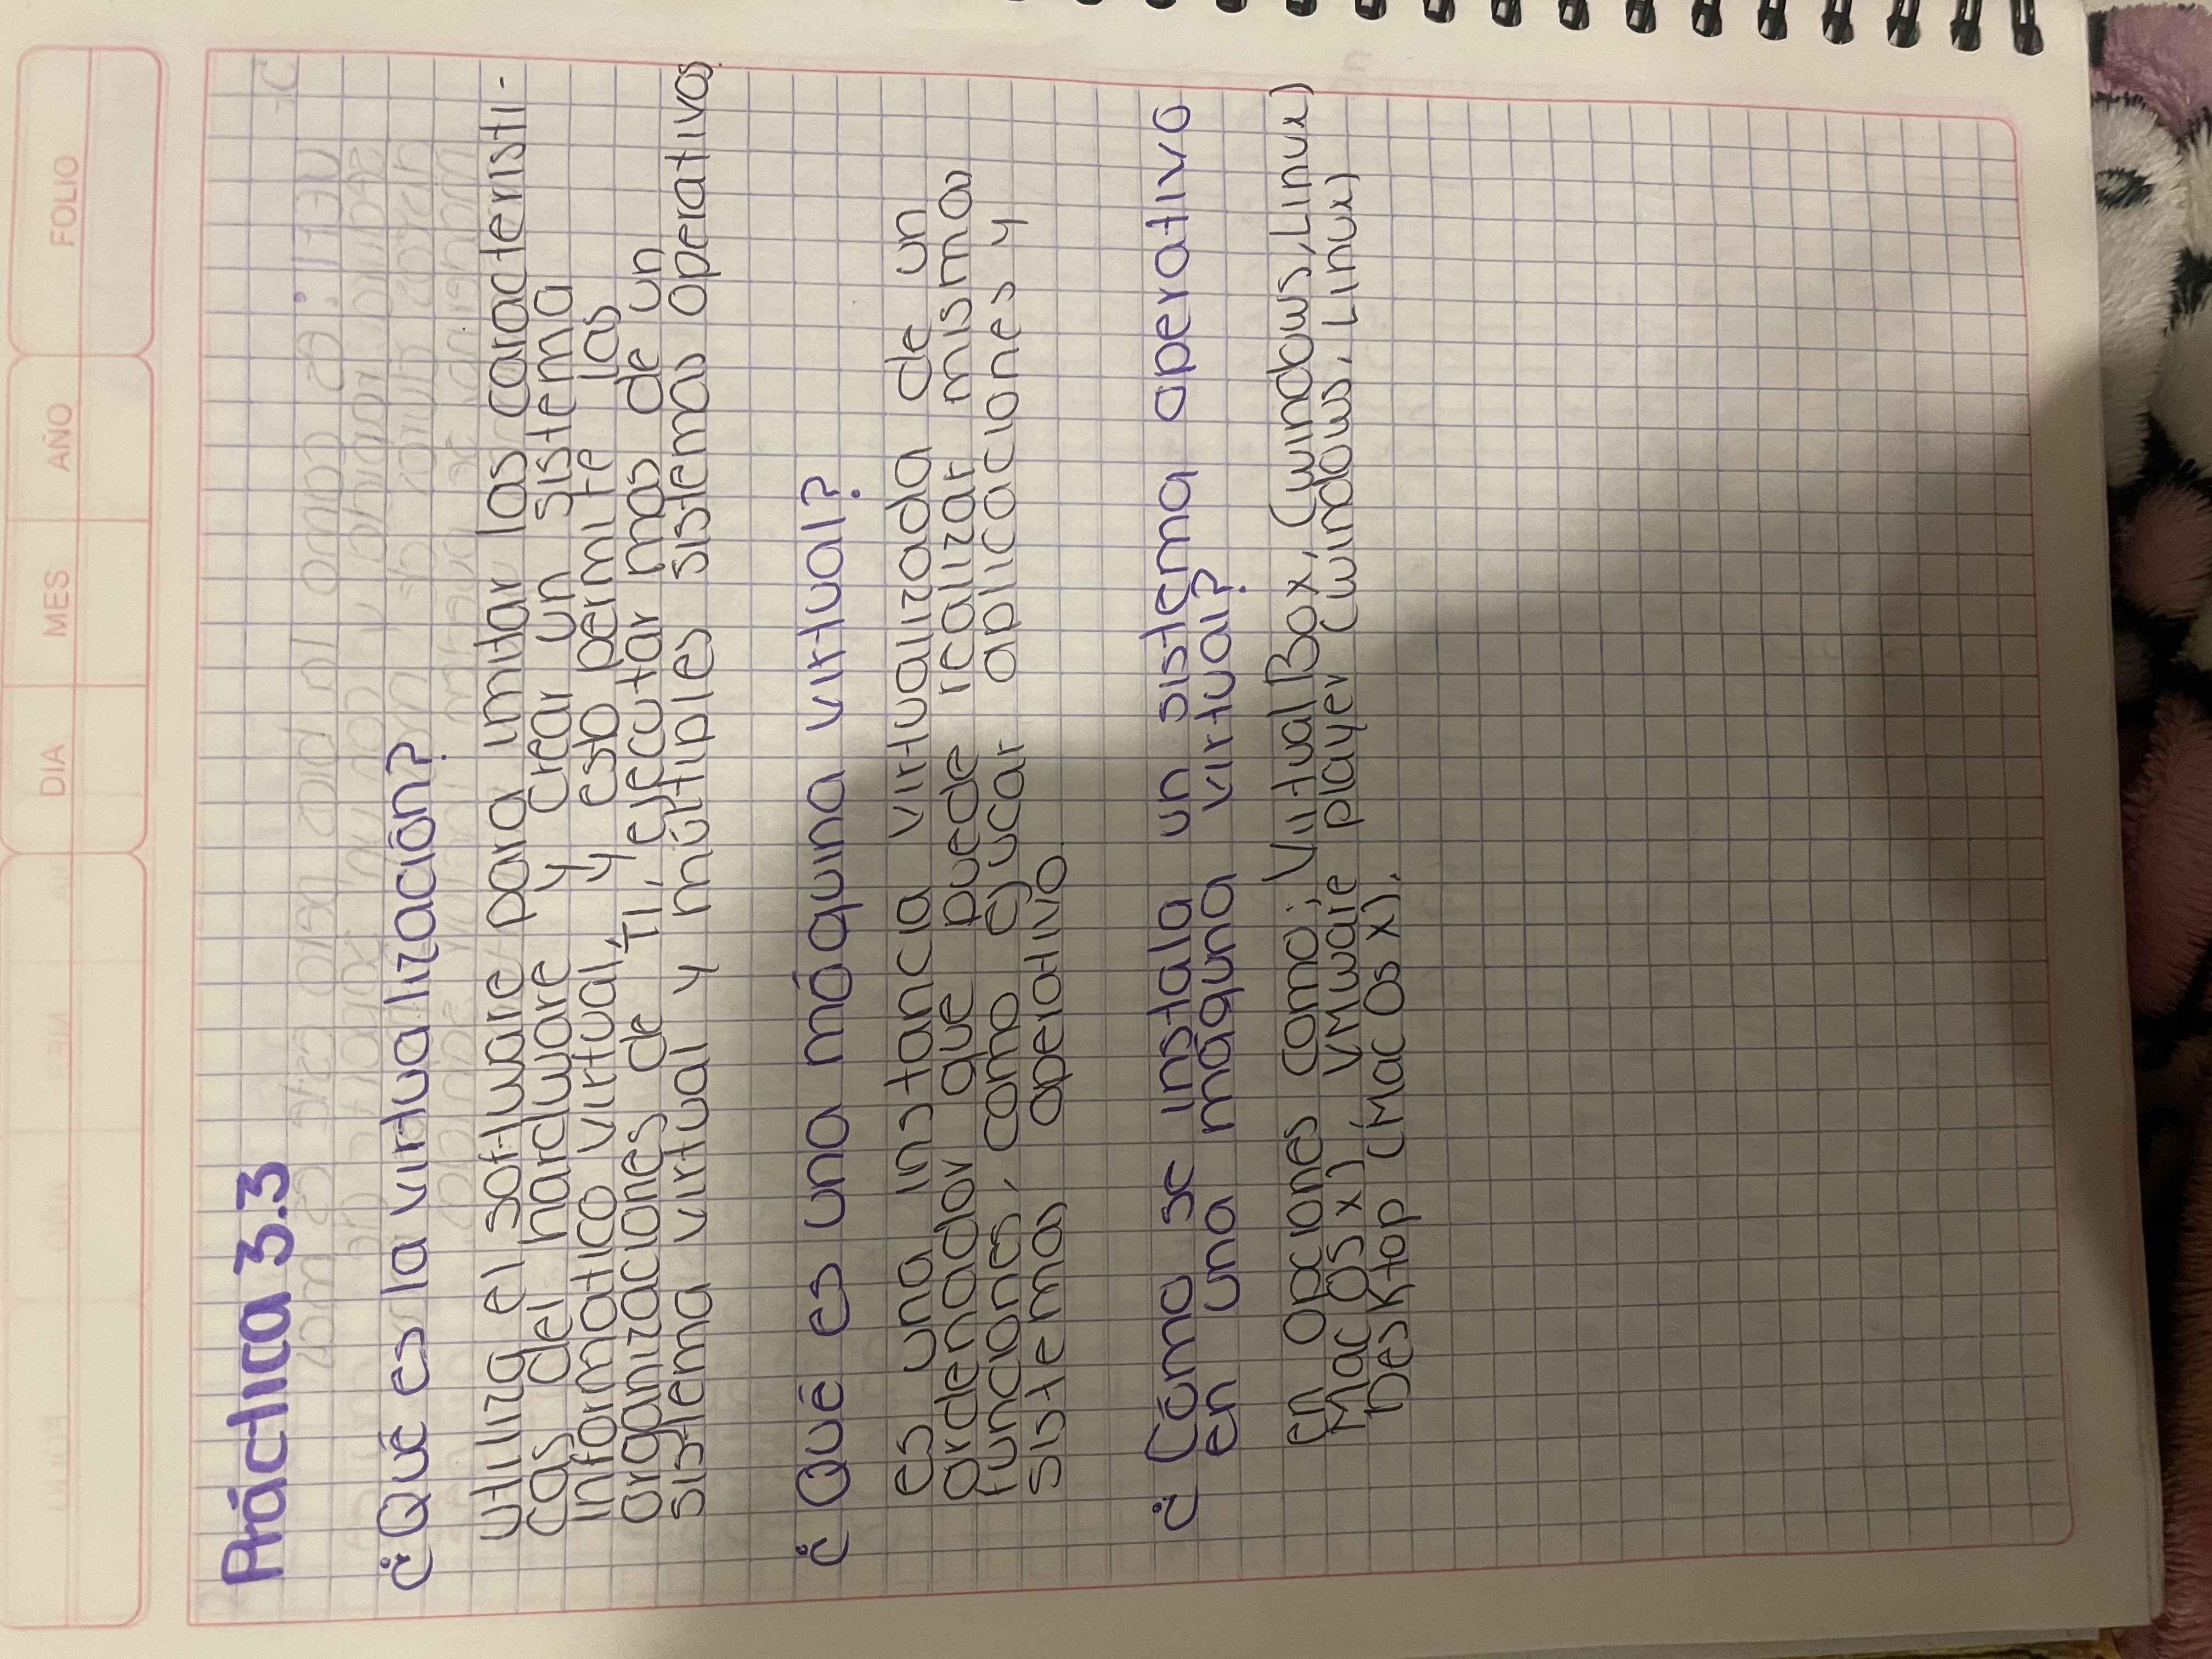 DIA MES AÑO FOLIO
Práctica 3.3
¿Qué es la virtualización?
Utiliza el software para imitar las característi-
cas del hardware y crear un sistema
informatico virtual, y esto permite las
organizaciones de TI, ejecutar mas de un
sistema virtual y múltiples sistemas operativos.
¿Qué es una máquina virtual?
es una instancia virtualizada de un
ordenador que puede realizar mismas
funciones, como ejucar aplicaciones y
sistemas operativo.
¿Cómo se instala un sistema operativo
en una máquna virtual?
en opciones como; VirtualBox, (windows, Linux)
Mac OS x), VMware player (windows, Linux)
Desktop (Mac Os X).